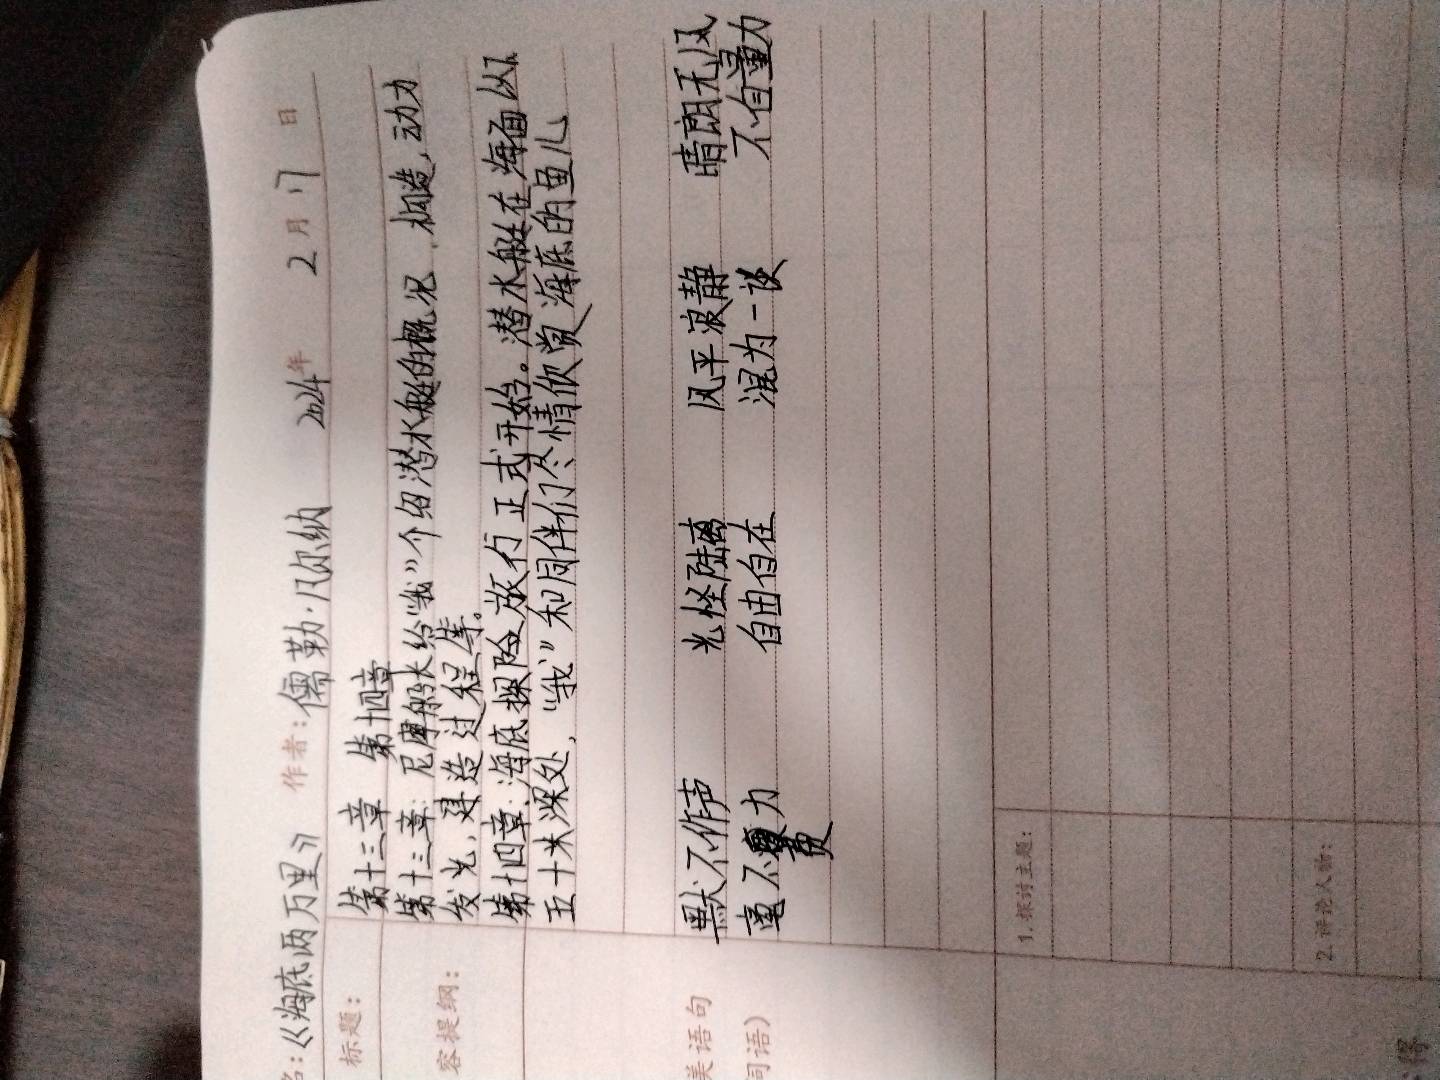 名：《海底两万里》 作者：儒勒·凡尔纳 2024年 2月17日
标题： 第十三章 第十四章
容提纲： 第十三章：尼摩船长给“我”介绍潜水艇的概况，构造，动力
发光，建造过程等。
第十四章：海底探险旅行正式开始。潜水艇在海面以下
五十米深处，“我”和同伴们尽情欣赏海底的鱼儿
美语句 默不作声 光怪陆离 风平浪静 晴朗无风
词语） 毫不费力 自由自在 混为一谈 不自量力
1. 探讨主题：
2. 评论人物：